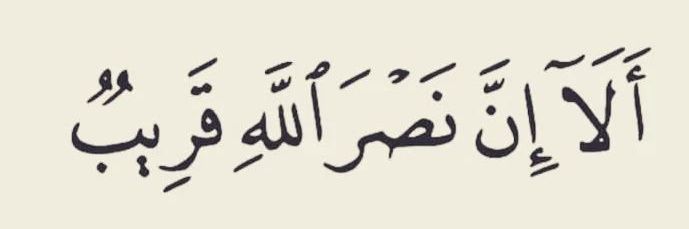 أَلَآ إِنَّ نَصْرَ ٱللَّهِ قَرِيبٌ